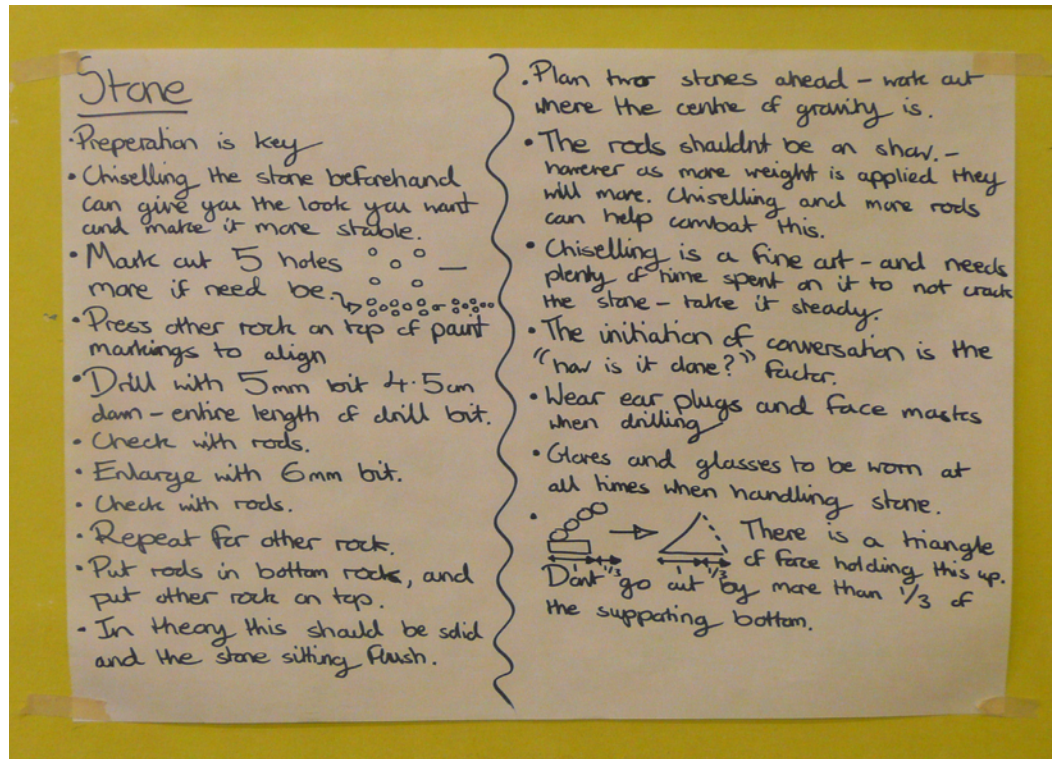 Stone
·Preperation is key
• Chiselling the stone beforehand
can give you the look you want
and make it more stable.
• Mark out 5 holes
more if need be.
• Press other rock on top of paint
markings to align
• Drill with 5mm bit 4.5cm
down – entire length of drill bit.
• Check with rods.
• Enlarge with 6mm bit.
• Check with rods.
• Repeat for other rock.
• Put rods in bottom rock, and
put other rock on top.
• In theory this should be solid
and the stone sitting flush.
• Plan two stones ahead – work out
where the centre of gravity is.
• The rods shouldnt be on show. –
however as more weight is applied they
will move. Chiselling and more rods
can help combat this.
• Chiselling is a fine art – and needs
plenty of time spent on it to not crack
the stone – take it steady.
• The initiation of conversation is the
"how is it done?" factor.
• Wear ear plugs and face masks
when drilling
• Gloves and glasses to be worn at
all times when handling stone.
• There is a triangle
of force holding this up.
1 1/3 1 1/3
Dont go out by more than 1/3 of
the supporting bottom.